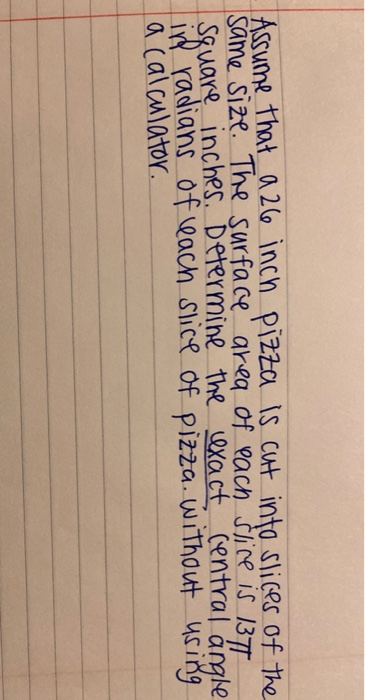 Assume that a 26 inch pizza is cut into slices of the
same size. The surface area of each slice is 13π
square inches. Determine the exact central angle
in radians of each slice of pizza. without using
a calculator.